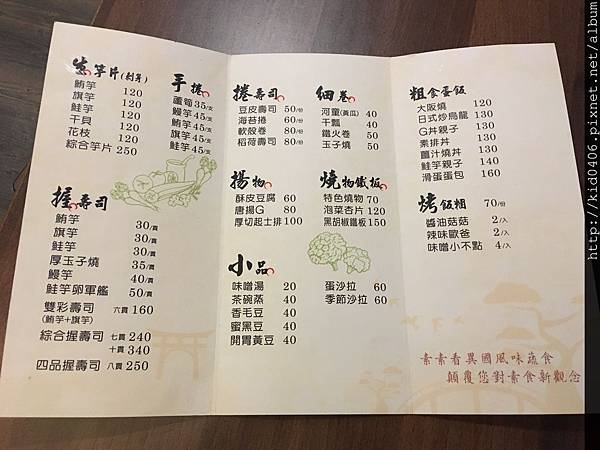 生竽片(刺竽)
鮪竽 120
旗竽 120
鮭竽 120
干貝 120
花枝 120
綜合竽片 250
握壽司
鮪竽 30/貫
旗竽 30/貫
鮭竽 30/貫
厚玉子燒 35/貫
鰻竽 40/貫
鮭竽卵軍艦 50/貫
雙彩壽司 六貫 160
(鮪竽+旗竽)
綜合握壽司 七貫 240
十貫 340
四品握壽司 八貫 250
手捲
蘆筍 35/支
鰻竽 45/支
鮪竽 45/支
旗竽 45/支
鮭竽 45/支
捲壽司
豆皮壽司 50/份
海苔捲 60/份
軟殼卷 80/份
稻荷壽司 80/份
細卷
河童(黃瓜) 40
干瓢 40
鐵火卷 50
玉子燒 50
揚物
酥皮豆腐 60
唐揚G 80
厚切起士排 100
燒物鐵板
特色燒物 70
泡菜杏片 120
黑胡椒鐵板 150
小品
味噌湯 20
茶碗蒸 40
香毛豆 40
蜜黑豆 40
開胃黃豆 40
蛋沙拉 60
季節沙拉 60
粗食蛋飯
大阪燒 120
日式炒烏龍 130
G丼親子 130
素排丼 130
薑汁燒丼 130
鮭竽親子 140
滑蛋蛋包 160
烤飯糰 70/份
醬油菇菇 2/入
辣味歐爸 2/入
味噌小不點 4/入
素素看異國風味蔬食
顛覆您對素食新觀念
http://kid0406.pixnet.net/album